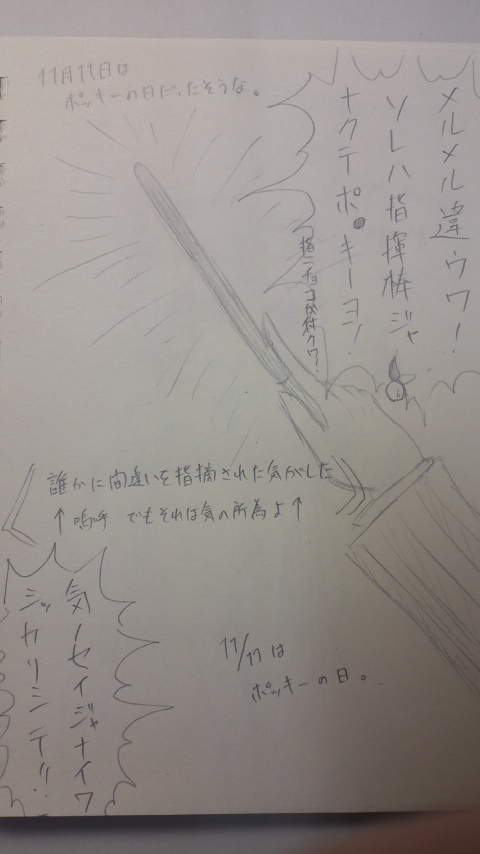 11月11日は
ポッキーの日だったそうな。
メルメル違ウワ!
ソレハ指揮棒ジャ
ナクテポッキーヨ!
指ニチョコが付クワ!
誰かに間違いを指摘された気がした
↑嗚呼 でもそれは気の所為よ↑
気ノセイジャナイワ
シッカリシテ!!
11/11は
ポッキーの日。